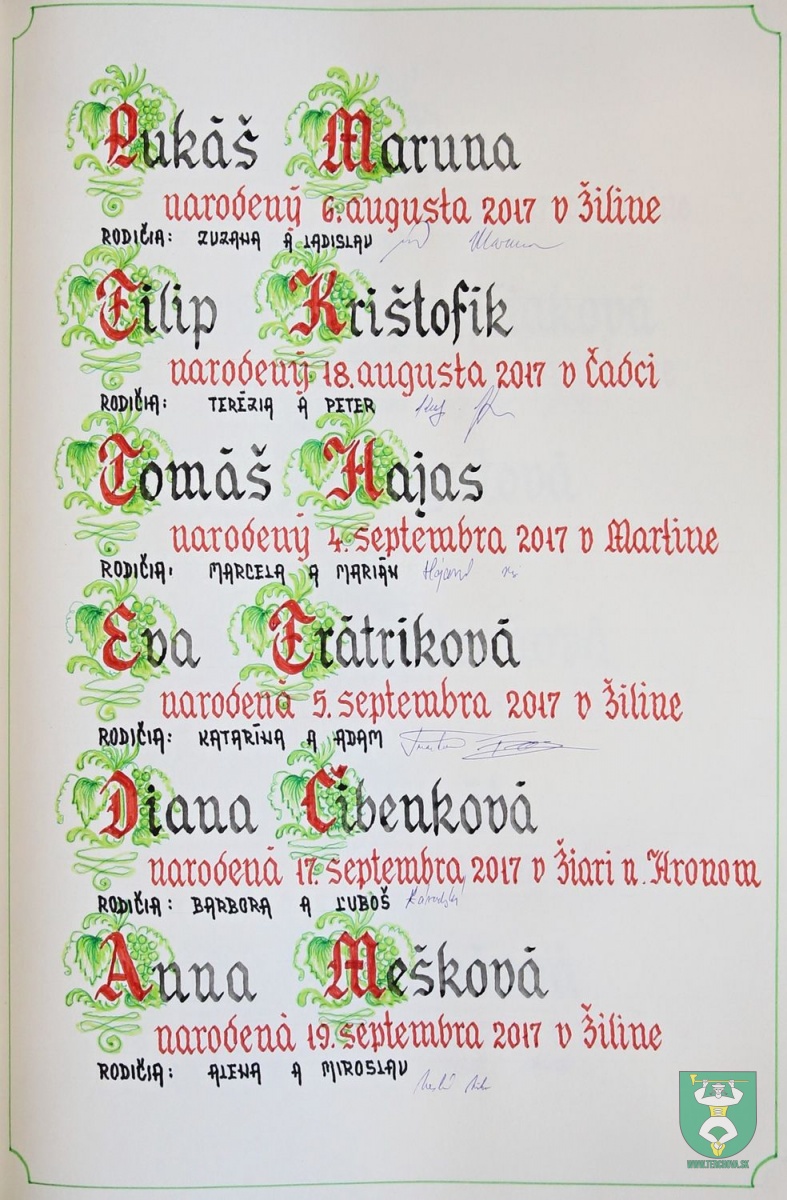 Lukáš Maruna
narodený 6. augusta 2017 v Žiline
RODIČIA: ZUZANA A LADISLAV
Filip Krištofik
narodený 18. augusta 2017 v Čadci
RODIČIA: TERÉZIA A PETER
Tomáš Hajas
narodený 4. septembra 2017 v Martine
RODIČIA: MARCELA A MARIÁN
Eva Trátriková
narodená 5. septembra 2017 v Žiline
RODIČIA: KATARÍNA A ADAM
Diana Čibenková
narodená 17. septembra 2017 v Žiari n. Hronom
RODIČIA: BARBORA A ĽUBOŠ
Anna Mešková
narodená 19. septembra 2017 v Žiline
RODIČIA: ALENA A MIROSLAV
WWW.TERCHOVA.SK